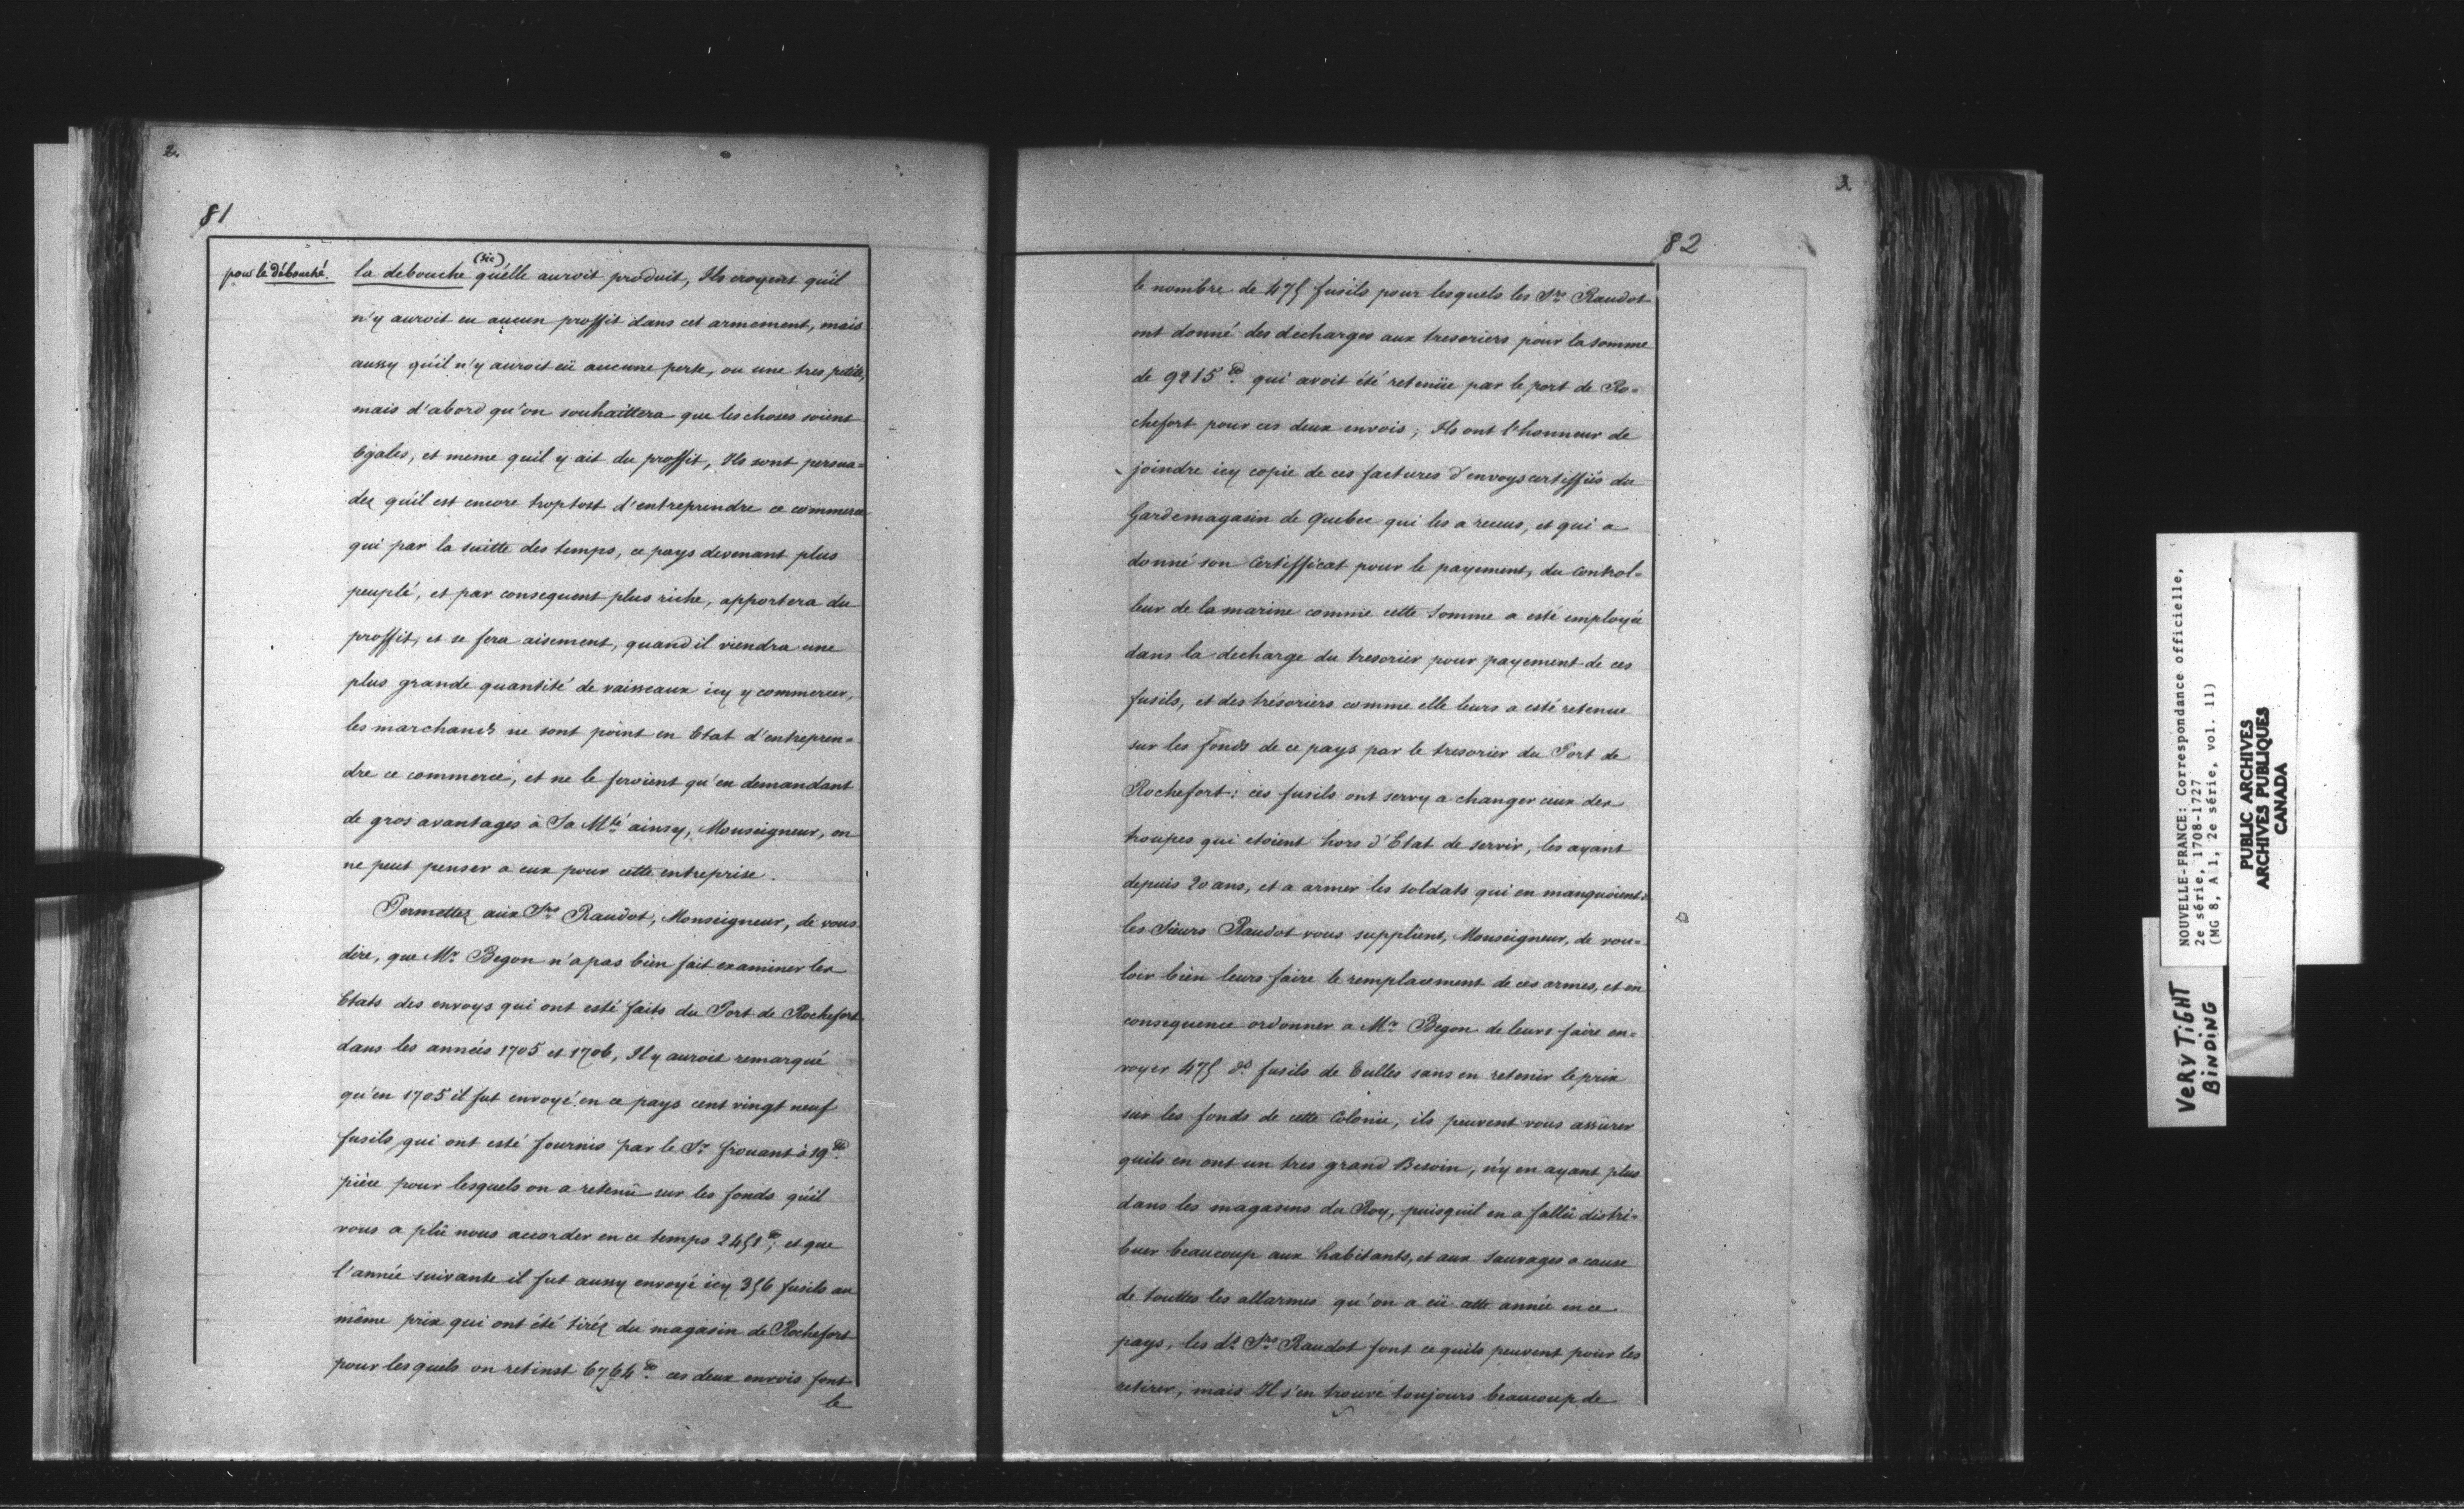 2.
81
pour le débouché.
(sic)
la debouche qu'elle auroit produit, Ils croyent qu'il
n'y auroit eu aucun proffit dans cet armement, mais
aussy qu'il n'y auroit eü aucune perte, ou une tres petite,
mais d'abord qu'on souhaittera que les choses soient
Egales, et meme quil y ait du proffit, Ils sont persua=
dez qu'il est encore troptost d'entreprendre ce commerce
qui par la suitte des temps, ce pays devenant plus
peuplé, et par consequent plus riche, apportera du
proffit, et se fera aisement, quand il viendra une
plus grande quantité de vaisseaux icy y commercer,
les marchands ne sont point en Etat d'entrepren=
dre ce commerce, et ne le feroient qu'en demandant
de gros avantages à Sa Mté ainsy, Monseigneur, on
ne peut penser a eux pour cette entreprise.
Permettez aux Srs Raudot, Monseigneur, de vous
dire, que Mr Begon n'a pas bien fait examiner les
Etats des envoys qui ont esté faits du Port de Rochefort
dans les années 1705 et 1706, Il y auroit remarqué
qu'en 1705 il fut envoyé en ce pays cent vingt neuf
fusils qui ont esté fournis par le Sr frouant à 19tt
pièce pour lesquels on a retenü sur les fonds qu'il
vous a plû nous accorder en ce temps 2451tt; et que
l'année suivante il fut aussy envoyé icy 356 fusils au
même prix qui ont été tiréz du magasin de Rochefort
pour lesquels on retinst 6764tt ces deux envois font
le
3.
82
le nombre de 475 fusils pour lesquels les Srs Raudot
ont donné des decharges aux tresoriers pour la somme
de 9215tt qui avoit été retenüe par le port de Ro=
chefort pour ces deux envois; Ils ont l'honneur de
joindre icy copie de ces factures d'envoys certiffiés du
Gardemagasin de Quebec qui les a receus, et qui a
donné son Certifficat pour le payement, du control=
leur de la marine comme cette somme a esté employée
dans la decharge du tresorier pour payement de ces
fusils, et des trésoriers comme elle leurs a esté retenue
sur les fonds de ce pays par le tresorier du Port de
Rochefort: ces fusils ont servy a changer ceux des
troupes qui etoient hors d'Etat de servir, les ayant
depuis 20 ans, et a armer les soldats qui en manquoient:
les Sieurs Raudot vous supplient, Monseigneur, de vou=
loir bien leurs faire le remplacement de ces armes, et en
consequence ordonner a Mr Begon de leurs faire en=
voyer 475 ds fusils de Tulles sans en retenir le prix
sur les fonds de cette Colonie, ils peuvent vous assürer
quils en ont un tres grand Besoin, n'y en ayant plus
dans les magasins du Roy, puisquil en a fallû distri=
buer beaucoup aux habitants, et aux Sauvages a cause
de touttes les allarmes qu'on a eü cette année en ce
pays, les dt Srs Raudot font ce quils peuvent pour les
retirer, mais Il s'en trouve toujours beaucoup de
NOUVELLE-FRANCE: Correspondance officielle,
2e série, 1708-1727
(MG 8, A 1, 2e série, vol. 11)
PUBLIC ARCHIVES
ARCHIVES PUBLIQUES
CANADA
VERY TIGHT
BINDING